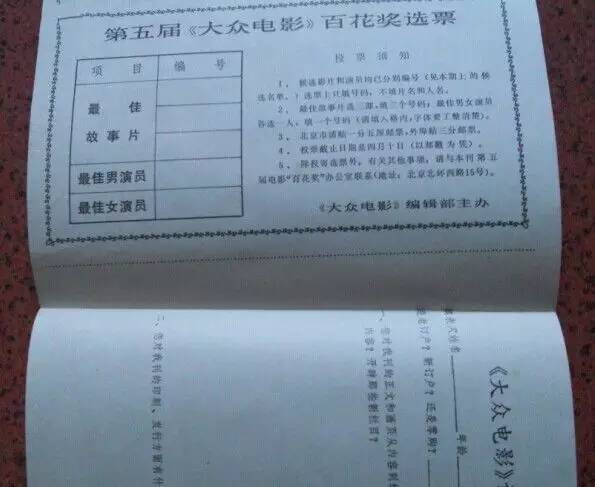 第五届《大众电影》百花奖选票
项 目 编 号
最 佳
故 事 片
最佳男演员
最佳女演员
投 票 须 知
1、候选影片和演员均已分别编号(见本期上的候
选名单。)选票上只填号码,不填片名和人名。
2、最佳故事片选三部,填三个号码;最佳男女演员
各选一人,填一个号码(请填入格内,字体要工整清楚)。
3、北京市请贴一分五厘邮票,外埠贴三分邮票。
4、投票截止日期是四月十日(以邮戳为凭)。
5、除投寄选票外,有关其他事项,请与本刊第五
届电影“百花奖”办公室联系(地址:北京北环西路15号)。
《大众电影》编辑部主办
《大众电影》
年龄
订户?新订户?还是零购?
一、您对我刊的正文和画页从内容到
内容?开辟那些新栏目?
二、您对我刊的印刷、发行方面有什